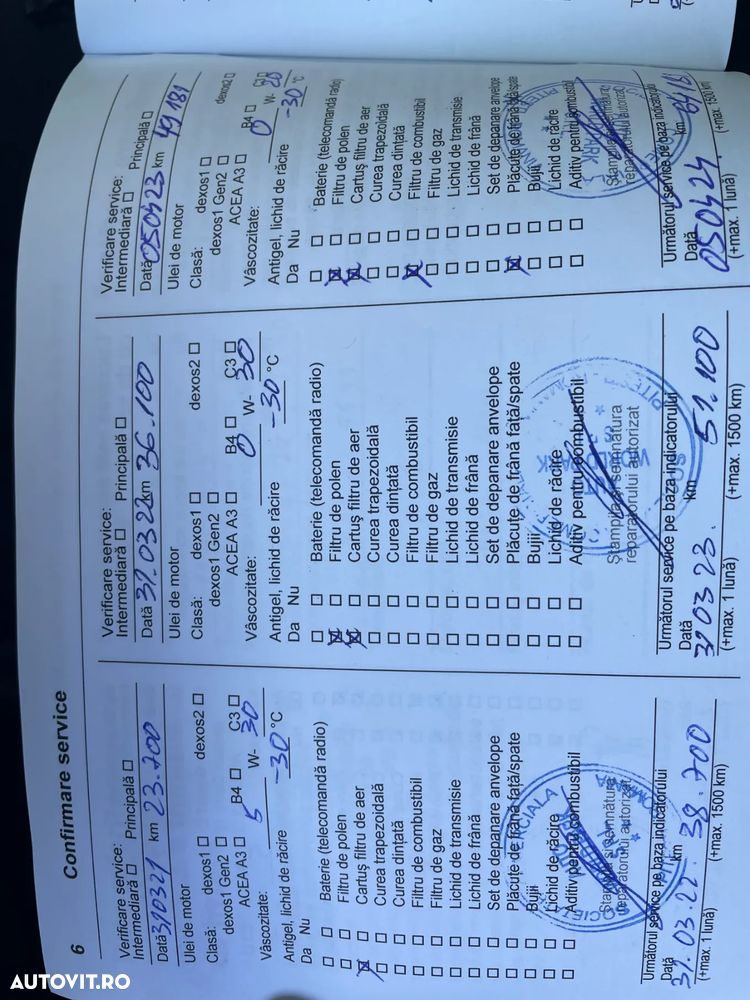 6
Confirmare service
Verificare service:
Intermediară ☐ Principală ☐
Dată 310321 km 23.700
Ulei de motor
Clasă: dexos1 ☐ dexos2 ☐
dexos1 Gen2 ☐
ACEA A3 ☐ B4 ☐ C3 ☐
Vâscozitate: 5 W- 30
Antigel, lichid de răcire -30 °C
Da Nu
☐ ☐ Baterie (telecomandă radio)
☐ ☐ Filtru de polen
☒ ☐ Cartuș filtru de aer
☐ ☐ Curea trapezoidală
☐ ☐ Curea dințată
☐ ☐ Filtru de combustibil
☐ ☐ Filtru de gaz
☐ ☐ Lichid de transmisie
☐ ☐ Lichid de frână
☐ ☐ Set de depanare anvelope
☐ ☐ Plăcuțe de frână față/spate
☐ ☐ Bujii
☐ ☐ Lichid de răcire
☐ ☐ Aditiv pentru combustibil
Ștampila și semnătura
reparatorului autorizat
Următorul service pe baza indicatorului
Dată km
31.03.22 38.700
(+max. 1 lună) (+max. 1500 km)
Verificare service:
Intermediară ☐ Principală ☐
Dată 31.03.22 km 36.100
Ulei de motor
Clasă: dexos1 ☐ dexos2 ☐
dexos1 Gen2 ☐
ACEA A3 ☐ B4 ☐ C3 ☐
Vâscozitate: 0 W- 30
Antigel, lichid de răcire -30 °C
Da Nu
☐ ☐ Baterie (telecomandă radio)
☒ ☐ Filtru de polen
☒ ☐ Cartuș filtru de aer
☐ ☐ Curea trapezoidală
☐ ☐ Curea dințată
☐ ☐ Filtru de combustibil
☐ ☐ Filtru de gaz
☐ ☐ Lichid de transmisie
☐ ☐ Lichid de frână
☐ ☐ Set de depanare anvelope
☐ ☐ Plăcuțe de frână față/spate
☐ ☐ Bujii
☐ ☐ Lichid de răcire
☐ ☐ Aditiv pentru combustibil
Ștampila și semnătura
reparatorului autorizat
Următorul service pe baza indicatorului
Dată km
31.03.23. 51.100
(+max. 1 lună) (+max. 1500 km)
Verificare service:
Intermediară ☐ Principală ☐
Dată 050423 km 49181
Ulei de motor
Clasă: dexos1 ☐ dexos2 ☐
dexos1 Gen2 ☐
ACEA A3 ☐ B4 ☐ C3 ☐
Vâscozitate: 0 W- 20
Antigel, lichid de răcire -30 °C
Da Nu
☐ ☐ Baterie (telecomandă radio)
☒ ☐ Filtru de polen
☒ ☐ Cartuș filtru de aer
☐ ☐ Curea trapezoidală
☐ ☐ Curea dințată
☒ ☐ Filtru de combustibil
☐ ☐ Filtru de gaz
☐ ☐ Lichid de transmisie
☐ ☐ Lichid de frână
☐ ☐ Set de depanare anvelope
☒ ☐ Plăcuțe de frână față/spate
☐ ☐ Bujii
☐ ☐ Lichid de răcire
☐ ☐ Aditiv pentru combustibil
Ștampila și semnătura
reparatorului autorizat
Următorul service pe baza indicatorului
Dată km
050424.
(+max. 1 lună) (+max. 1500 km)
AUTOVIT.RO